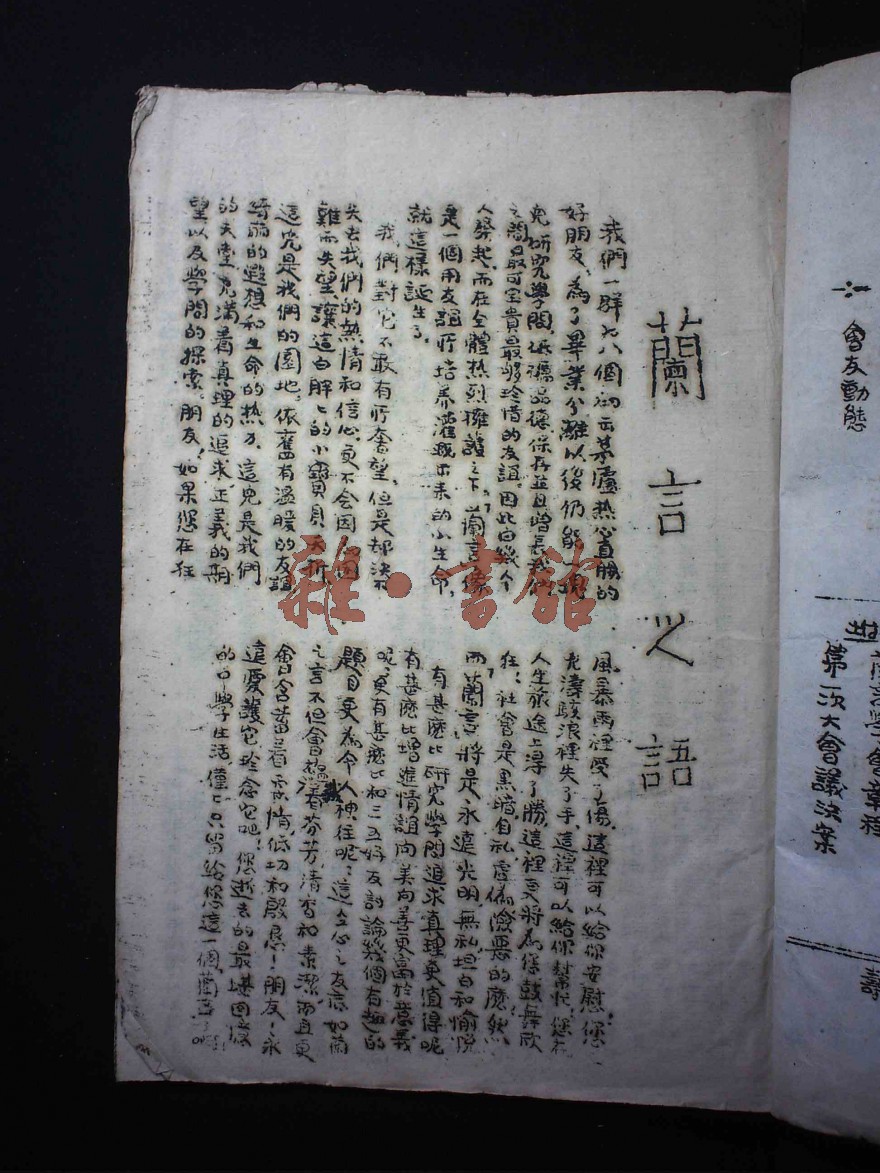 會友動態
蘭言學會章程
第一次大會議決案
蘭言之語
我們一群七八個初出茅廬热心真腸的
好朋友，為了畢業分離以後仍能一塊
兒研究學問，砥礪品德，保存並且增長我們
之間最可宝貴最够珍惜的友誼。因此由幾个
人發起，而在全體热烈擁護之下，「蘭言」像
是一個用友誼所培养灌溉出来的小生命，
就這樣誕生了。
我們對它不敢有所奢望，但是却決不
失去我們的熱情和信心，更不会因困
難而失望，讓這白胖上的小寶貝夭折
這兒是我們的園地。依舊有溫暖的友誼
綺丽的遐想和生命的热力，這兒是我們
的天堂充滿着真理的追求正義的期
望以及學問的探索。朋友！如果您在狂
風暴雨裡受了傷，這裡可以給你安慰！您
在濤駭浪裡失了手，這裡可以給你幫忙！您在
人生旅途上得了勝，這裡更將為您鼓舞欣
狂！社會是黑暗自私虛偽險惡的魔然
而「蘭言」將是永遠光明無私坦白和愉悅
有甚麼比研究學問追求真理更值得呢
有甚麼比增進情誼向美向善更富於意義
呢，更有甚麼比和三五好友討論幾個有趣的
題目更為令人神往呢。這「同心之友源如蘭
之言」不但會散溢着芬芳清香和素潔而且更
會含蓄着深情低切和殷息！朋友！永
遠愛護它珍念它吧！您逝去的最堪回憶
的中學生活僅上只留給您這一個「蘭言」